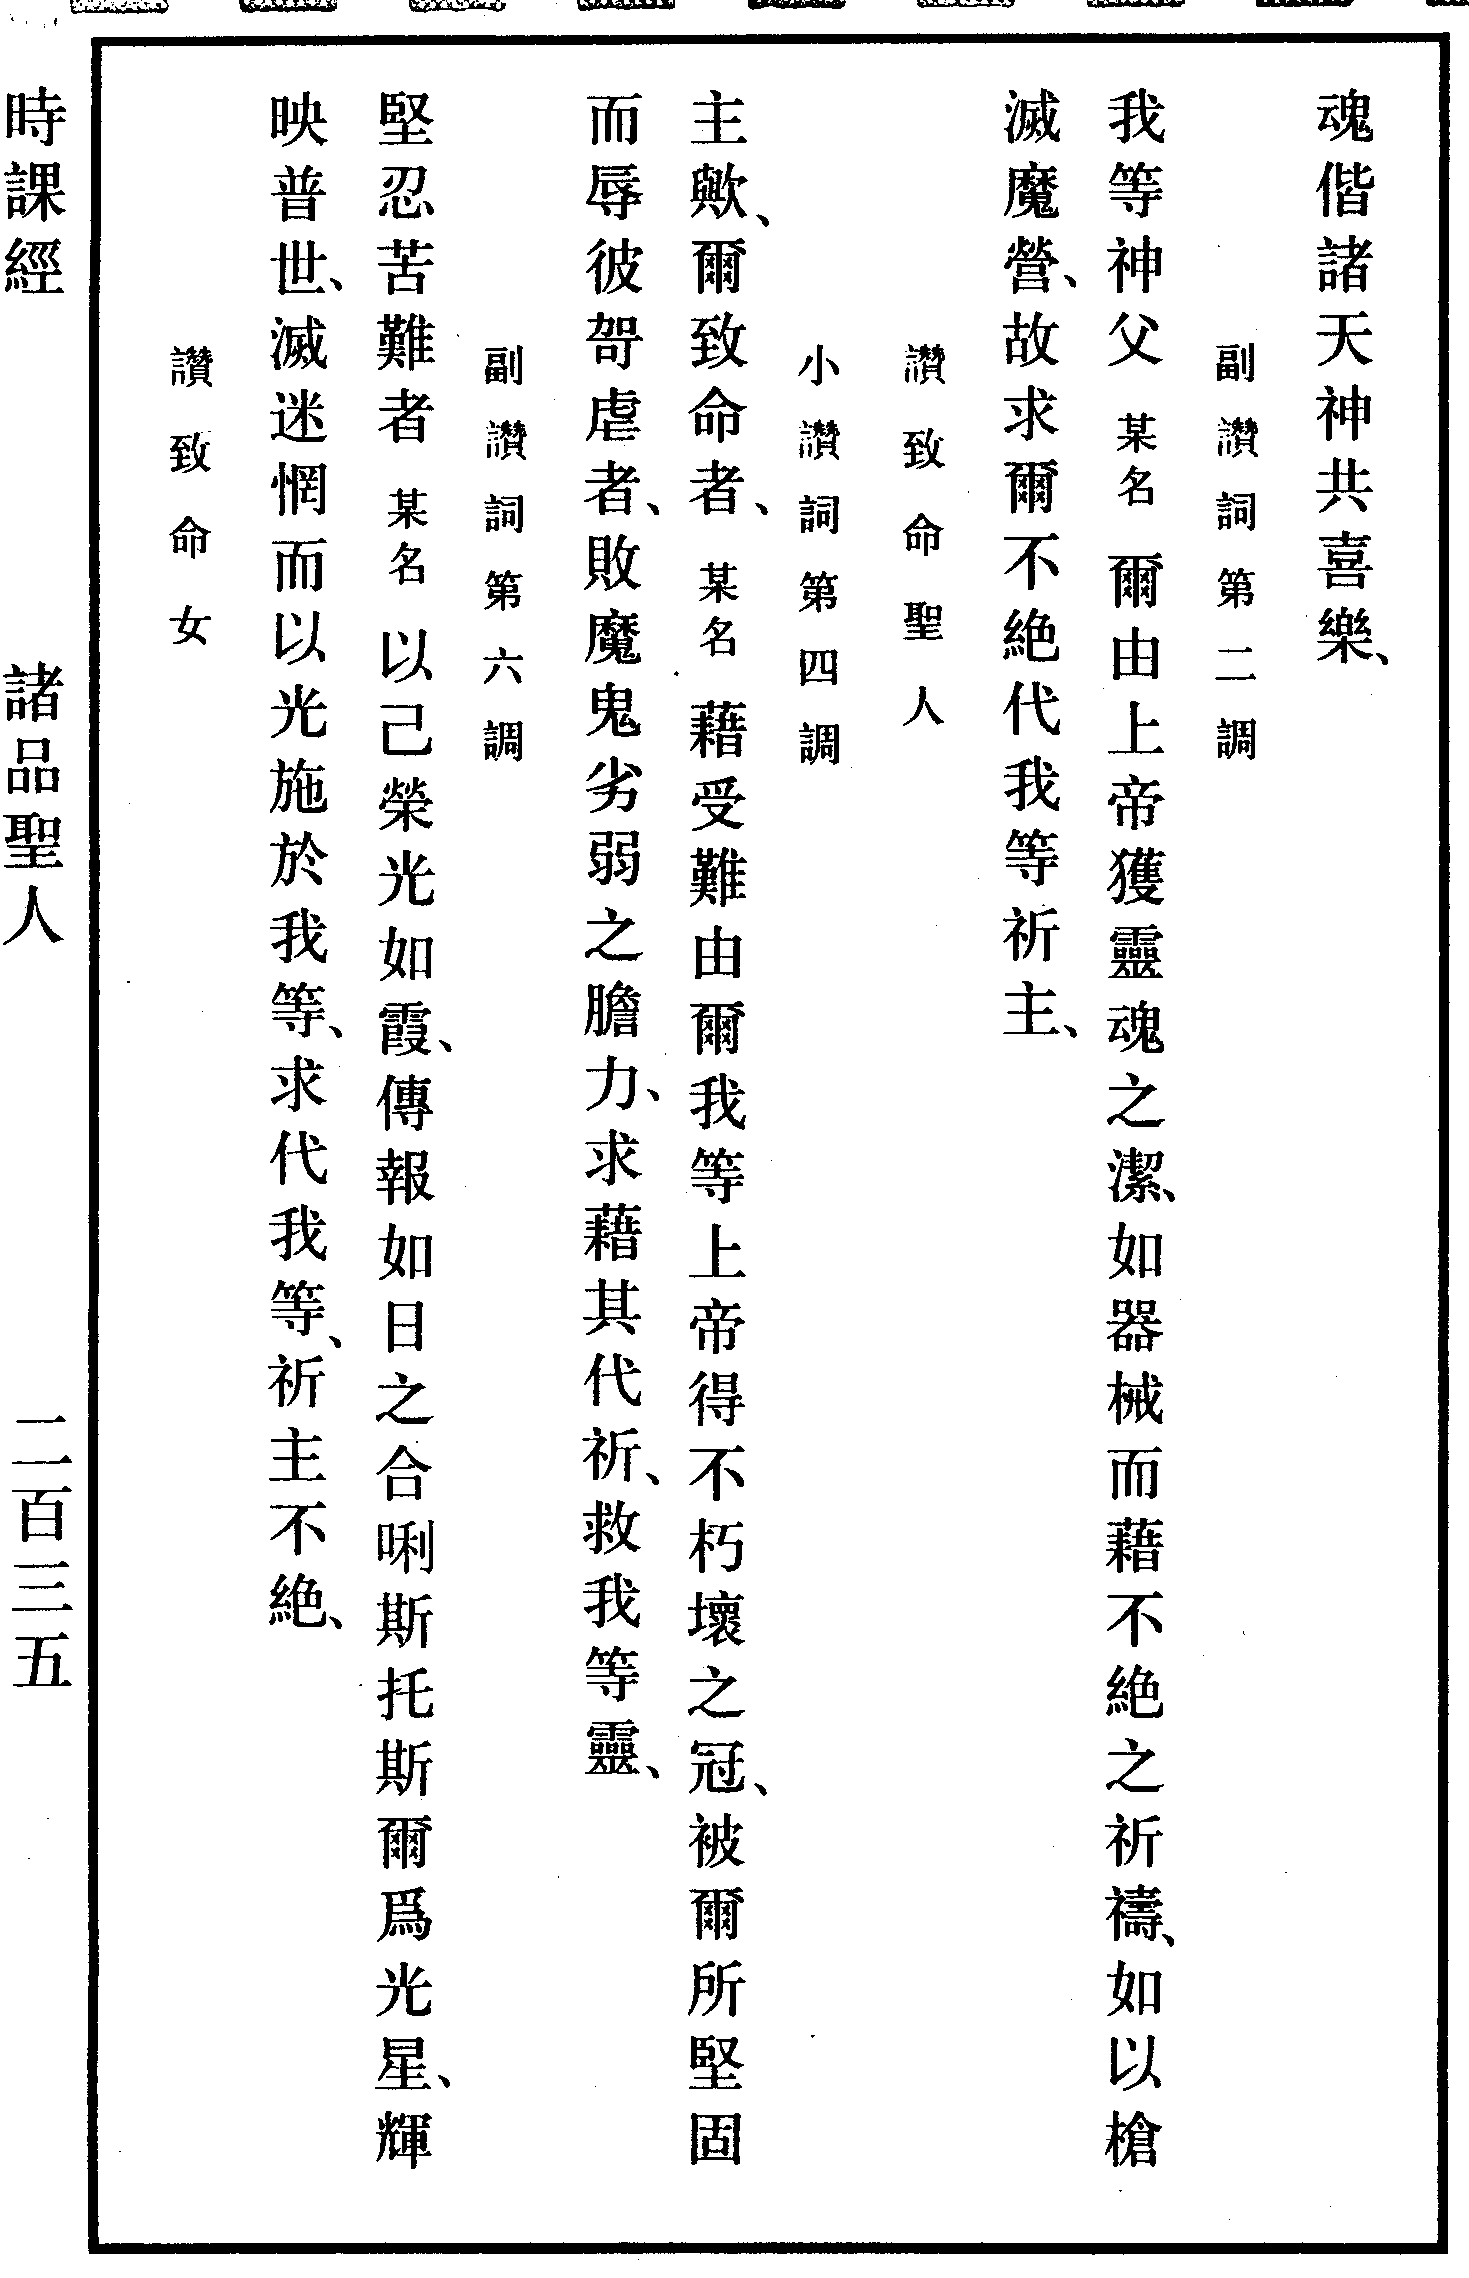 魂偕諸天神共喜樂、
副讚詞第二調
我等神父 某名 爾由上帝獲靈魂之潔、如器械而藉不絶之祈禱、如以槍
滅魔營、故求爾不絶代我等祈主、
讚致命聖人
小讚詞第四調
主歟、爾致命者、某名 藉受難由爾我等上帝得不朽壞之冠、被爾所堅固
而辱彼哿虐者、敗魔鬼劣弱之膽力、求藉其代祈、救我等靈、
副讚詞第六調
堅忍苦難者 某名 以己榮光如霞、傳報如日之合唎斯托斯爾爲光星、輝
映普世、滅迷惘而以光施於我等、求代我等、祈主不絶、
讚致命女
時課經 諸品聖人 二百三五